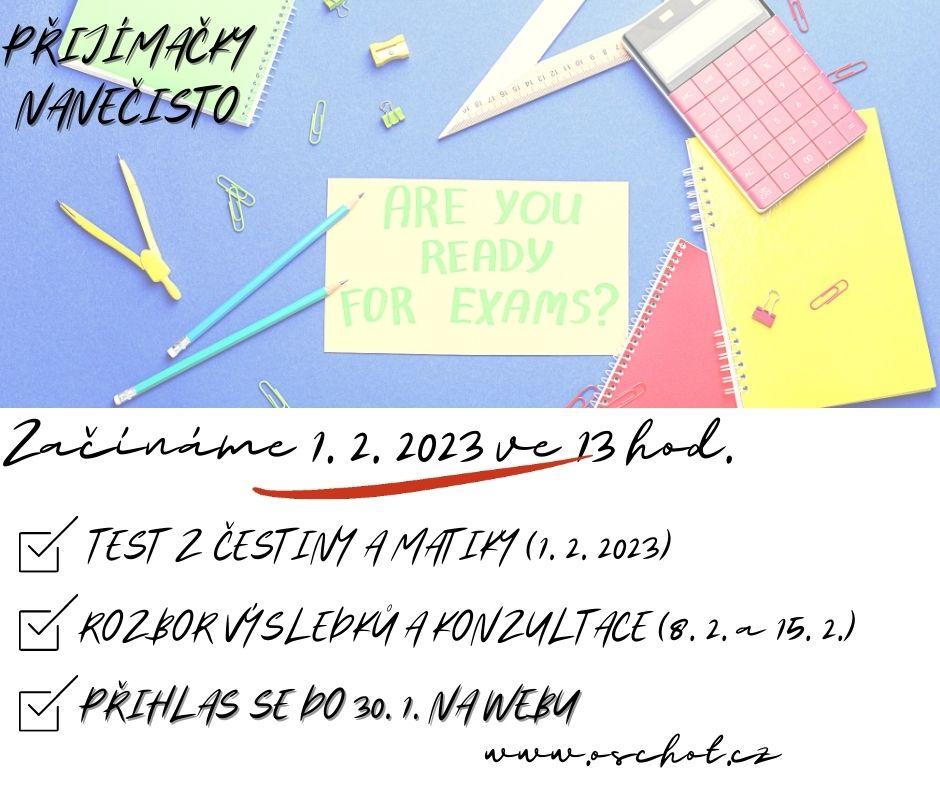 PŘIJÍMAČKY
NANEČISTO
ARE YOU
READY
FOR EXAMS?
Začínáme 1. 2. 2023 ve 13 hod.
TEST Z ČESTINY A MATIKY (1. 2. 2023)
ROZBOR VÝSLEDKŮ A KONZULTACE (8. 2. a 15. 2.)
PŘIHLAS SE DO 30. 1. NA WEBU
www.oschot.cz